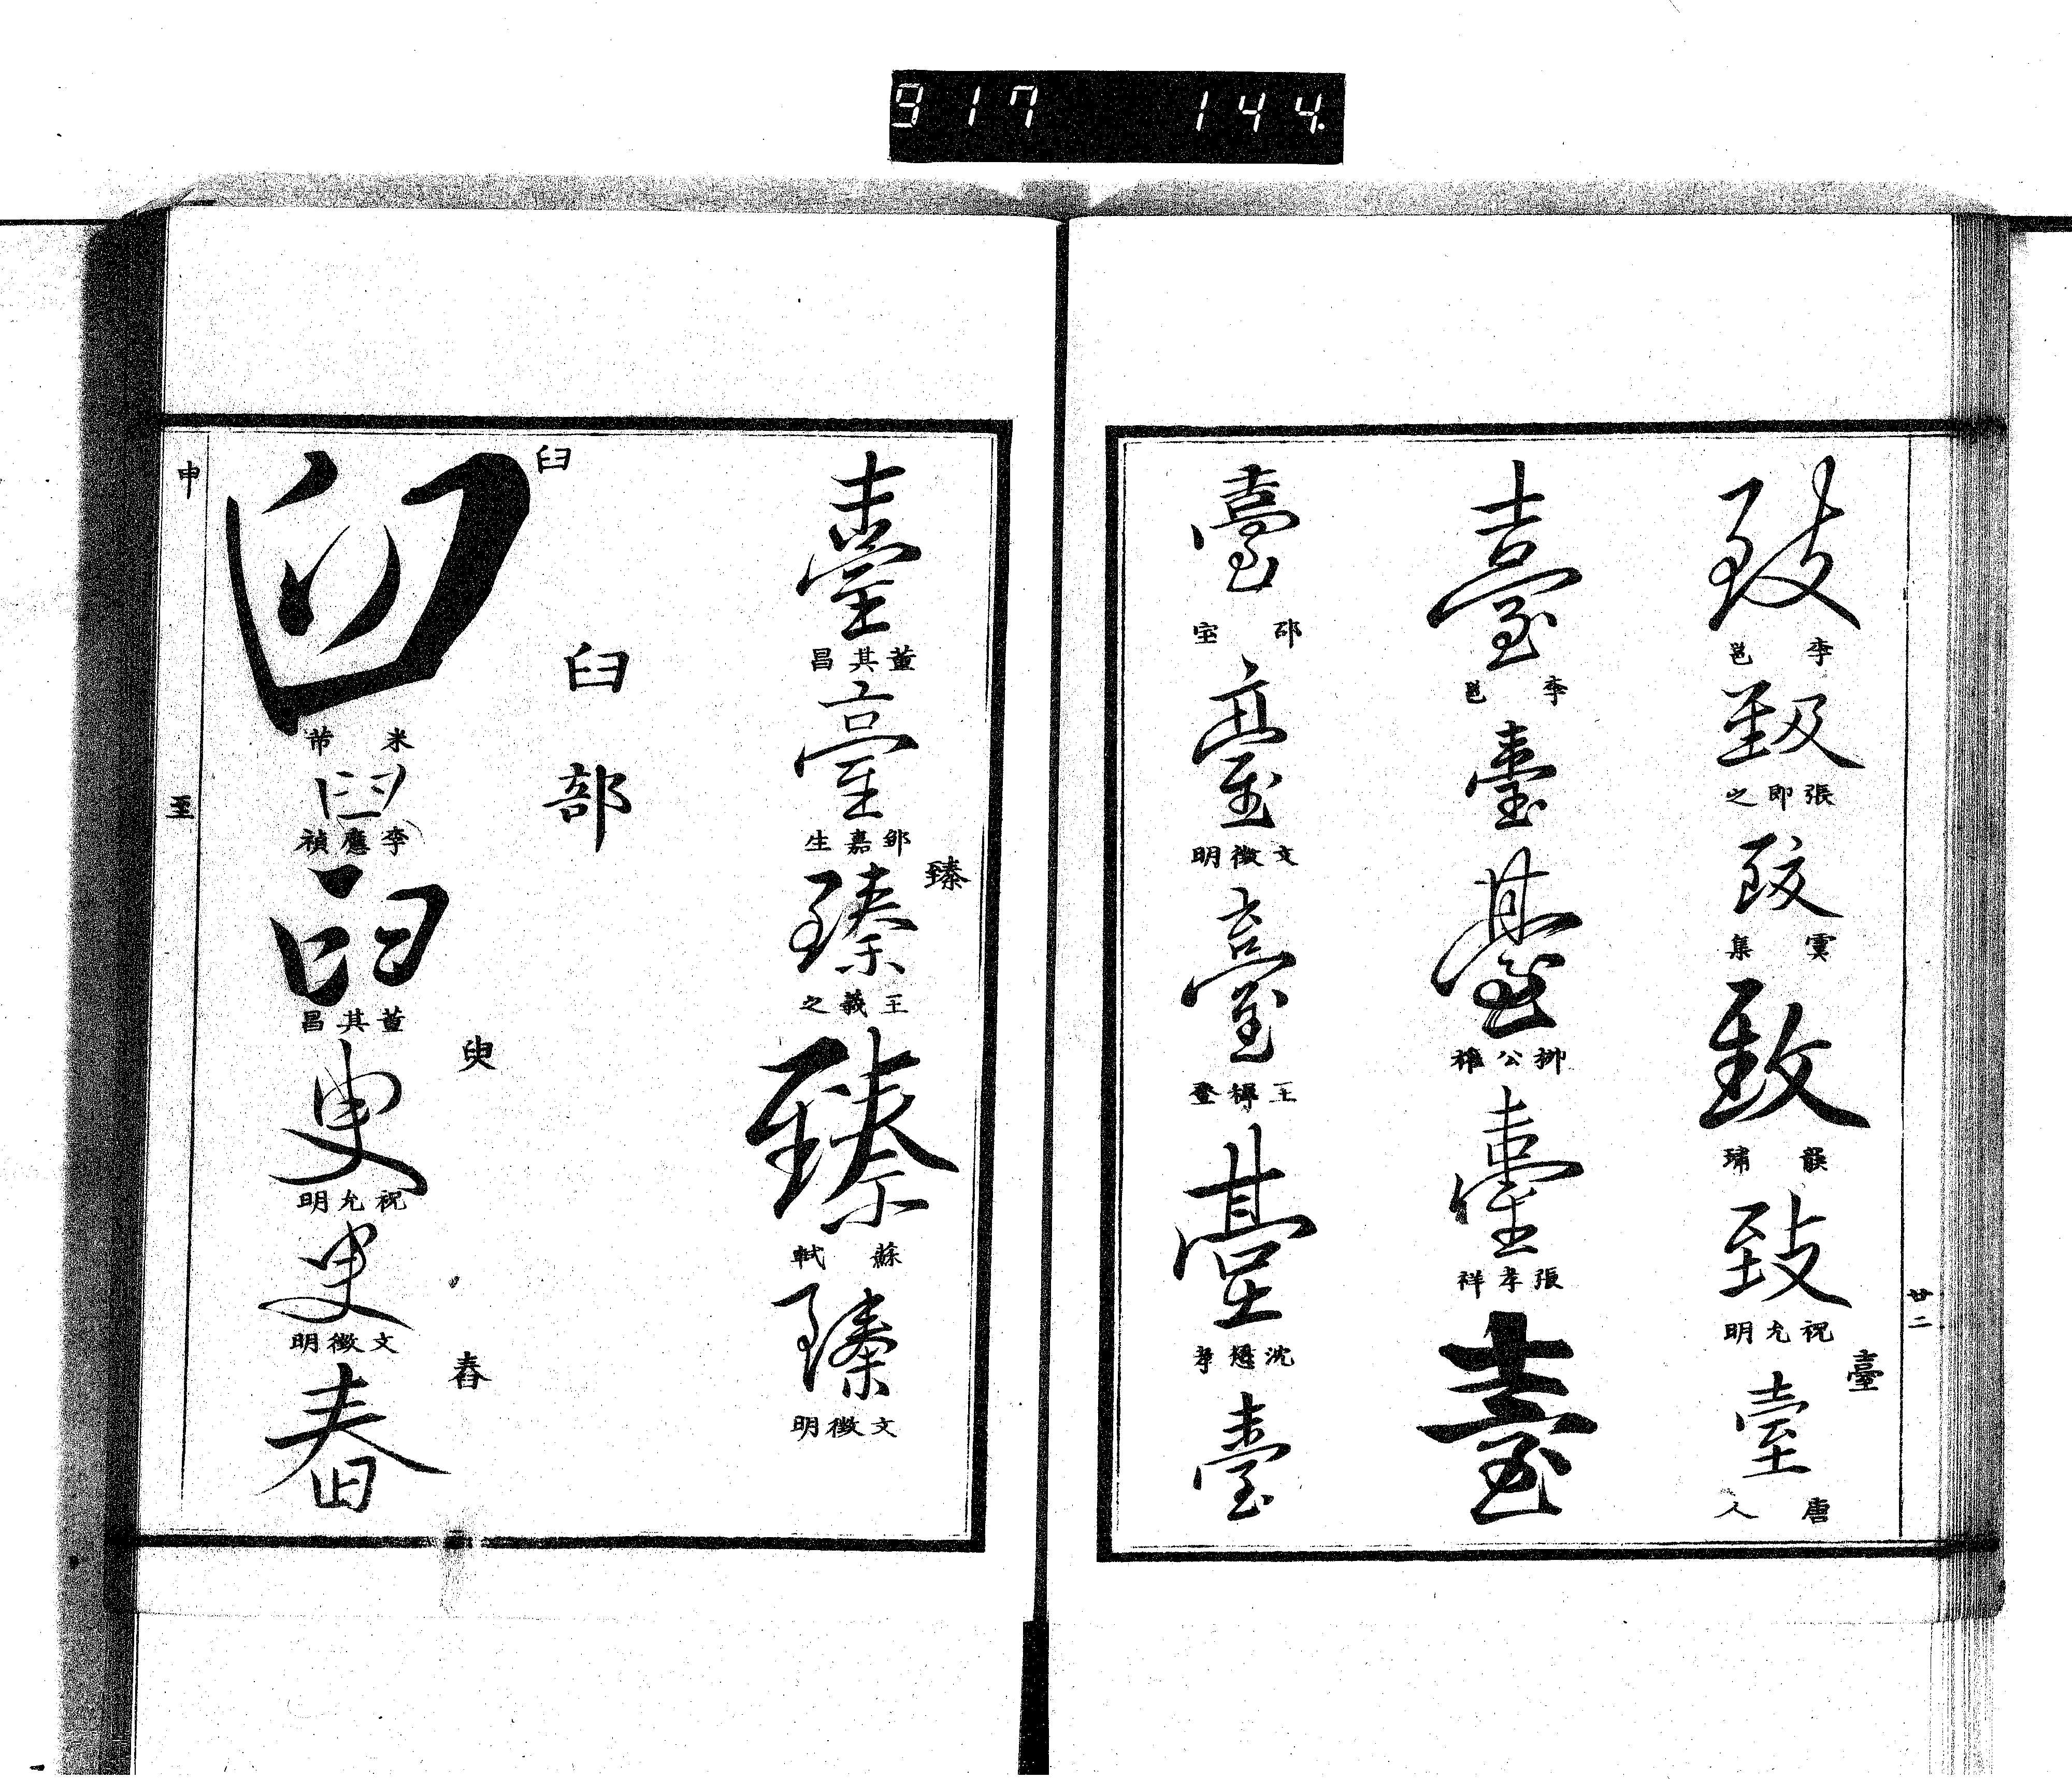 917 144.
致
李邕
致
張即之
致
虞集
致
致
祝允明
臺
臺
唐人
廿二
臺
李邕
臺
臺
柳公權
臺
張孝祥
臺
臺
邵宝
臺
文徵明
臺
王穉登
臺
沈懋孝
臺
臺
董其昌
臺
鄒嘉生
臻
臻
王羲之
臻
蘇軾
臻
文徵明
臼部
臼
臼
米芾
臼
李應禎
臼
董其昌
臾
臾
祝允明
臾
文徵明
舂
舂
申
至